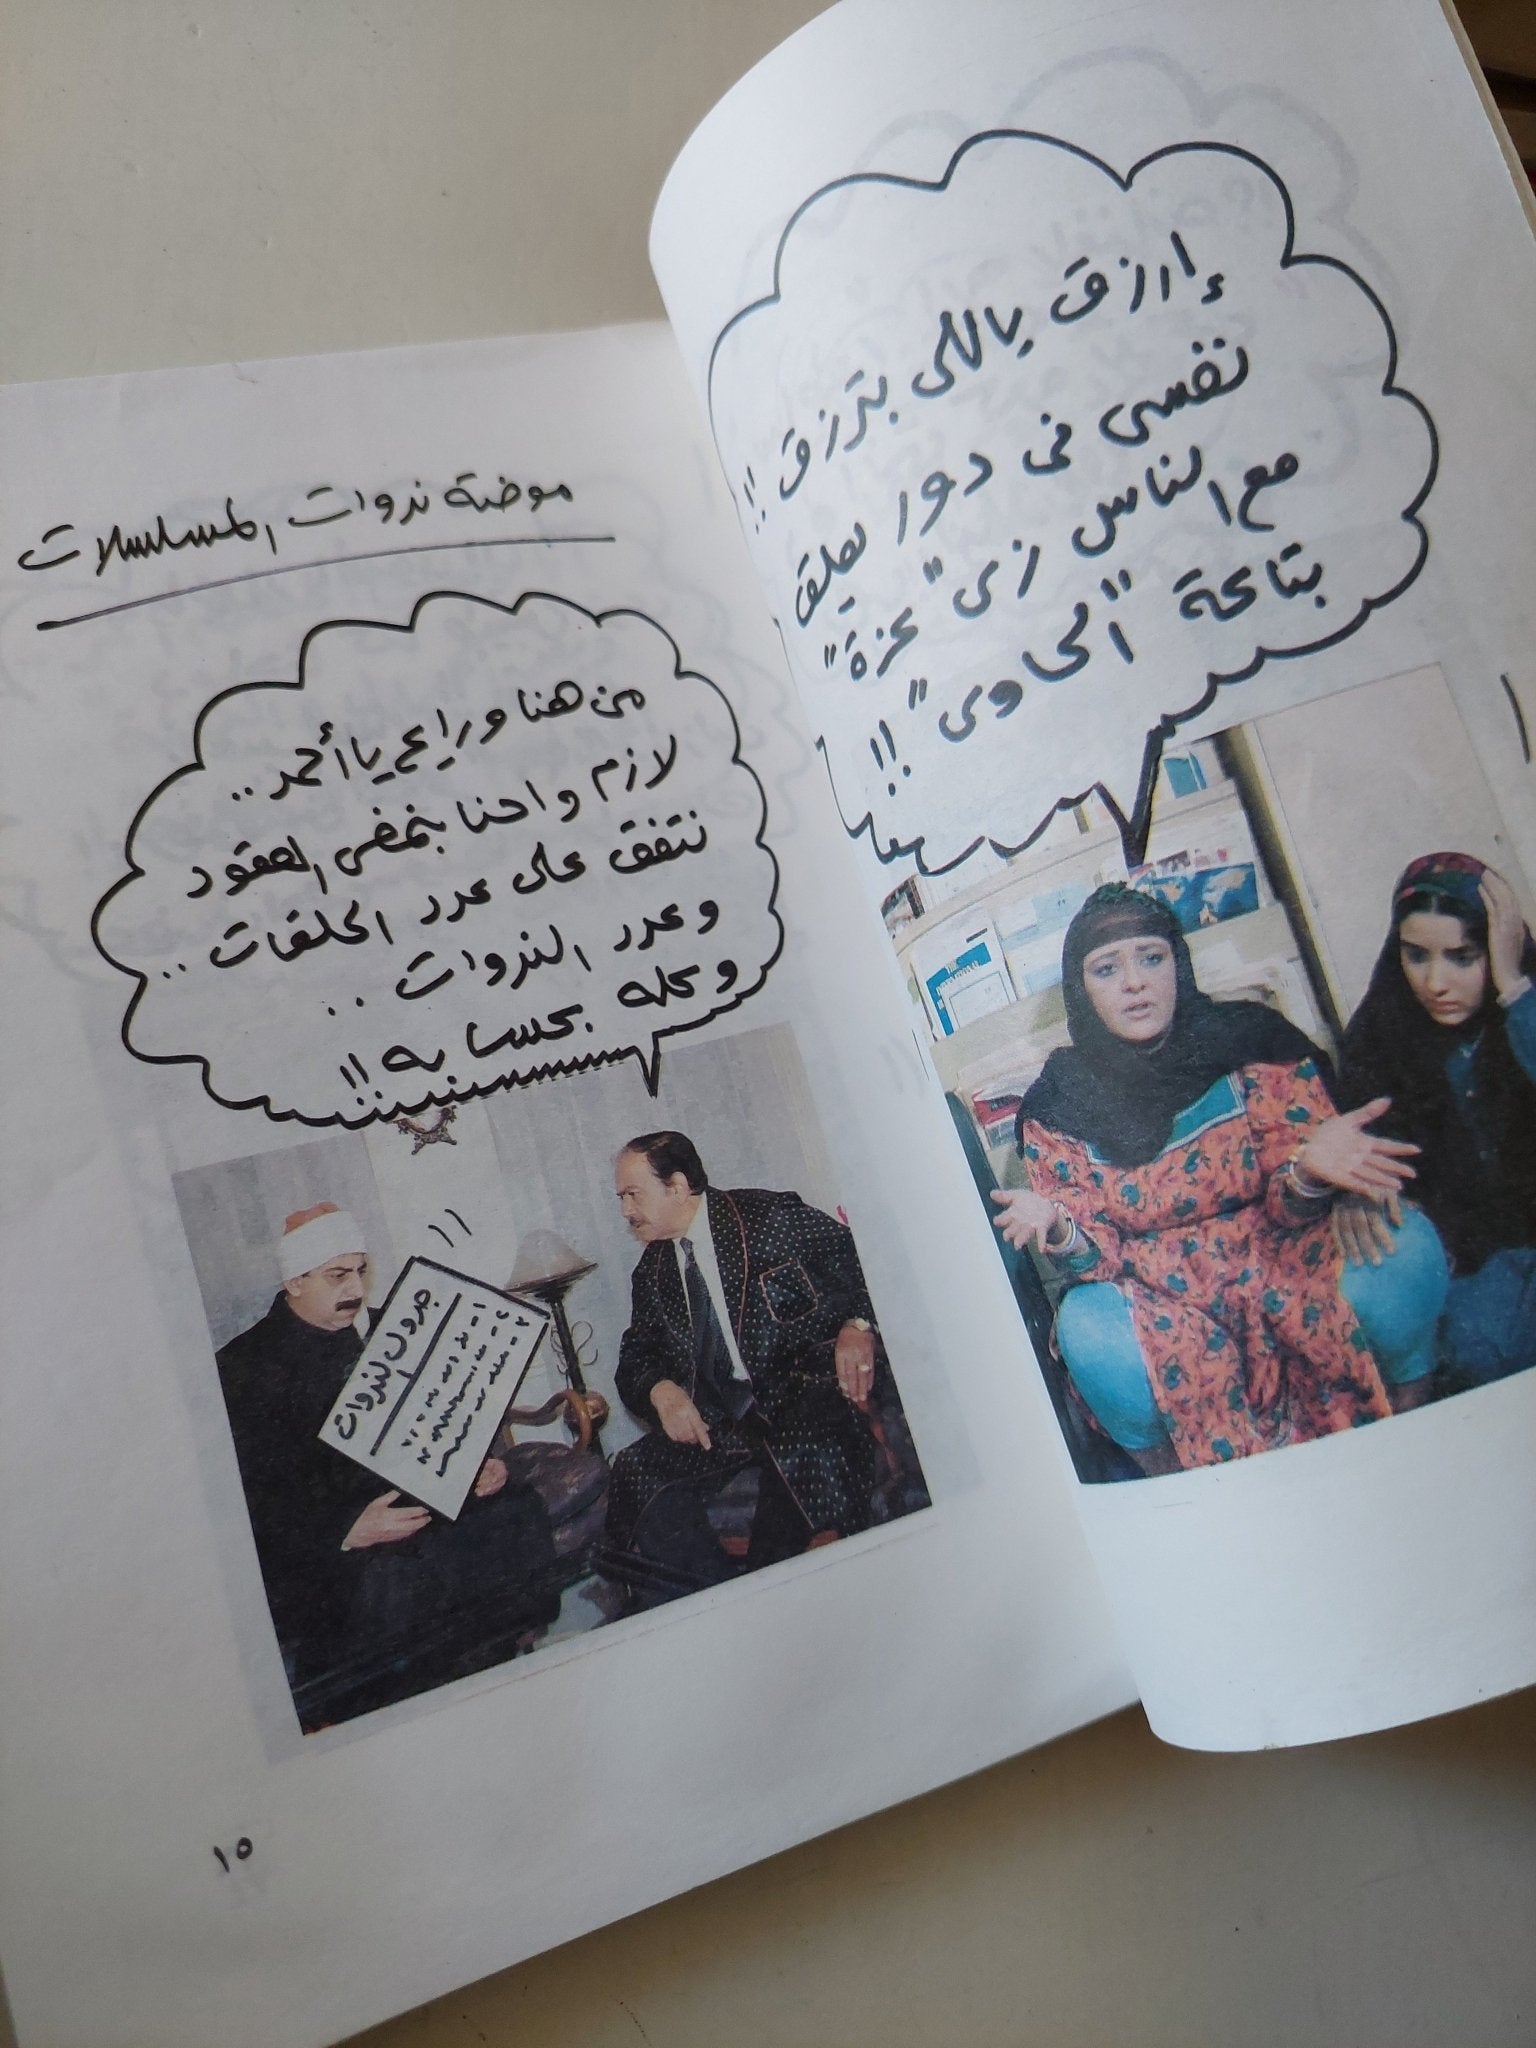 إرزق ياللى بترزق !!
نفسى فى دور يعلق
مع الناس زى "عزة"
بتاعة "الحاوى" !!
موضة ندوات المسلسلات
من هنا ورايح يا أحمد ..
لازم واحنا بنمضى العقود
نتفق على عدد الحلقات ..
وعدد الندوات ..
وكله بحسابه !!
جدول الندوات
١٥